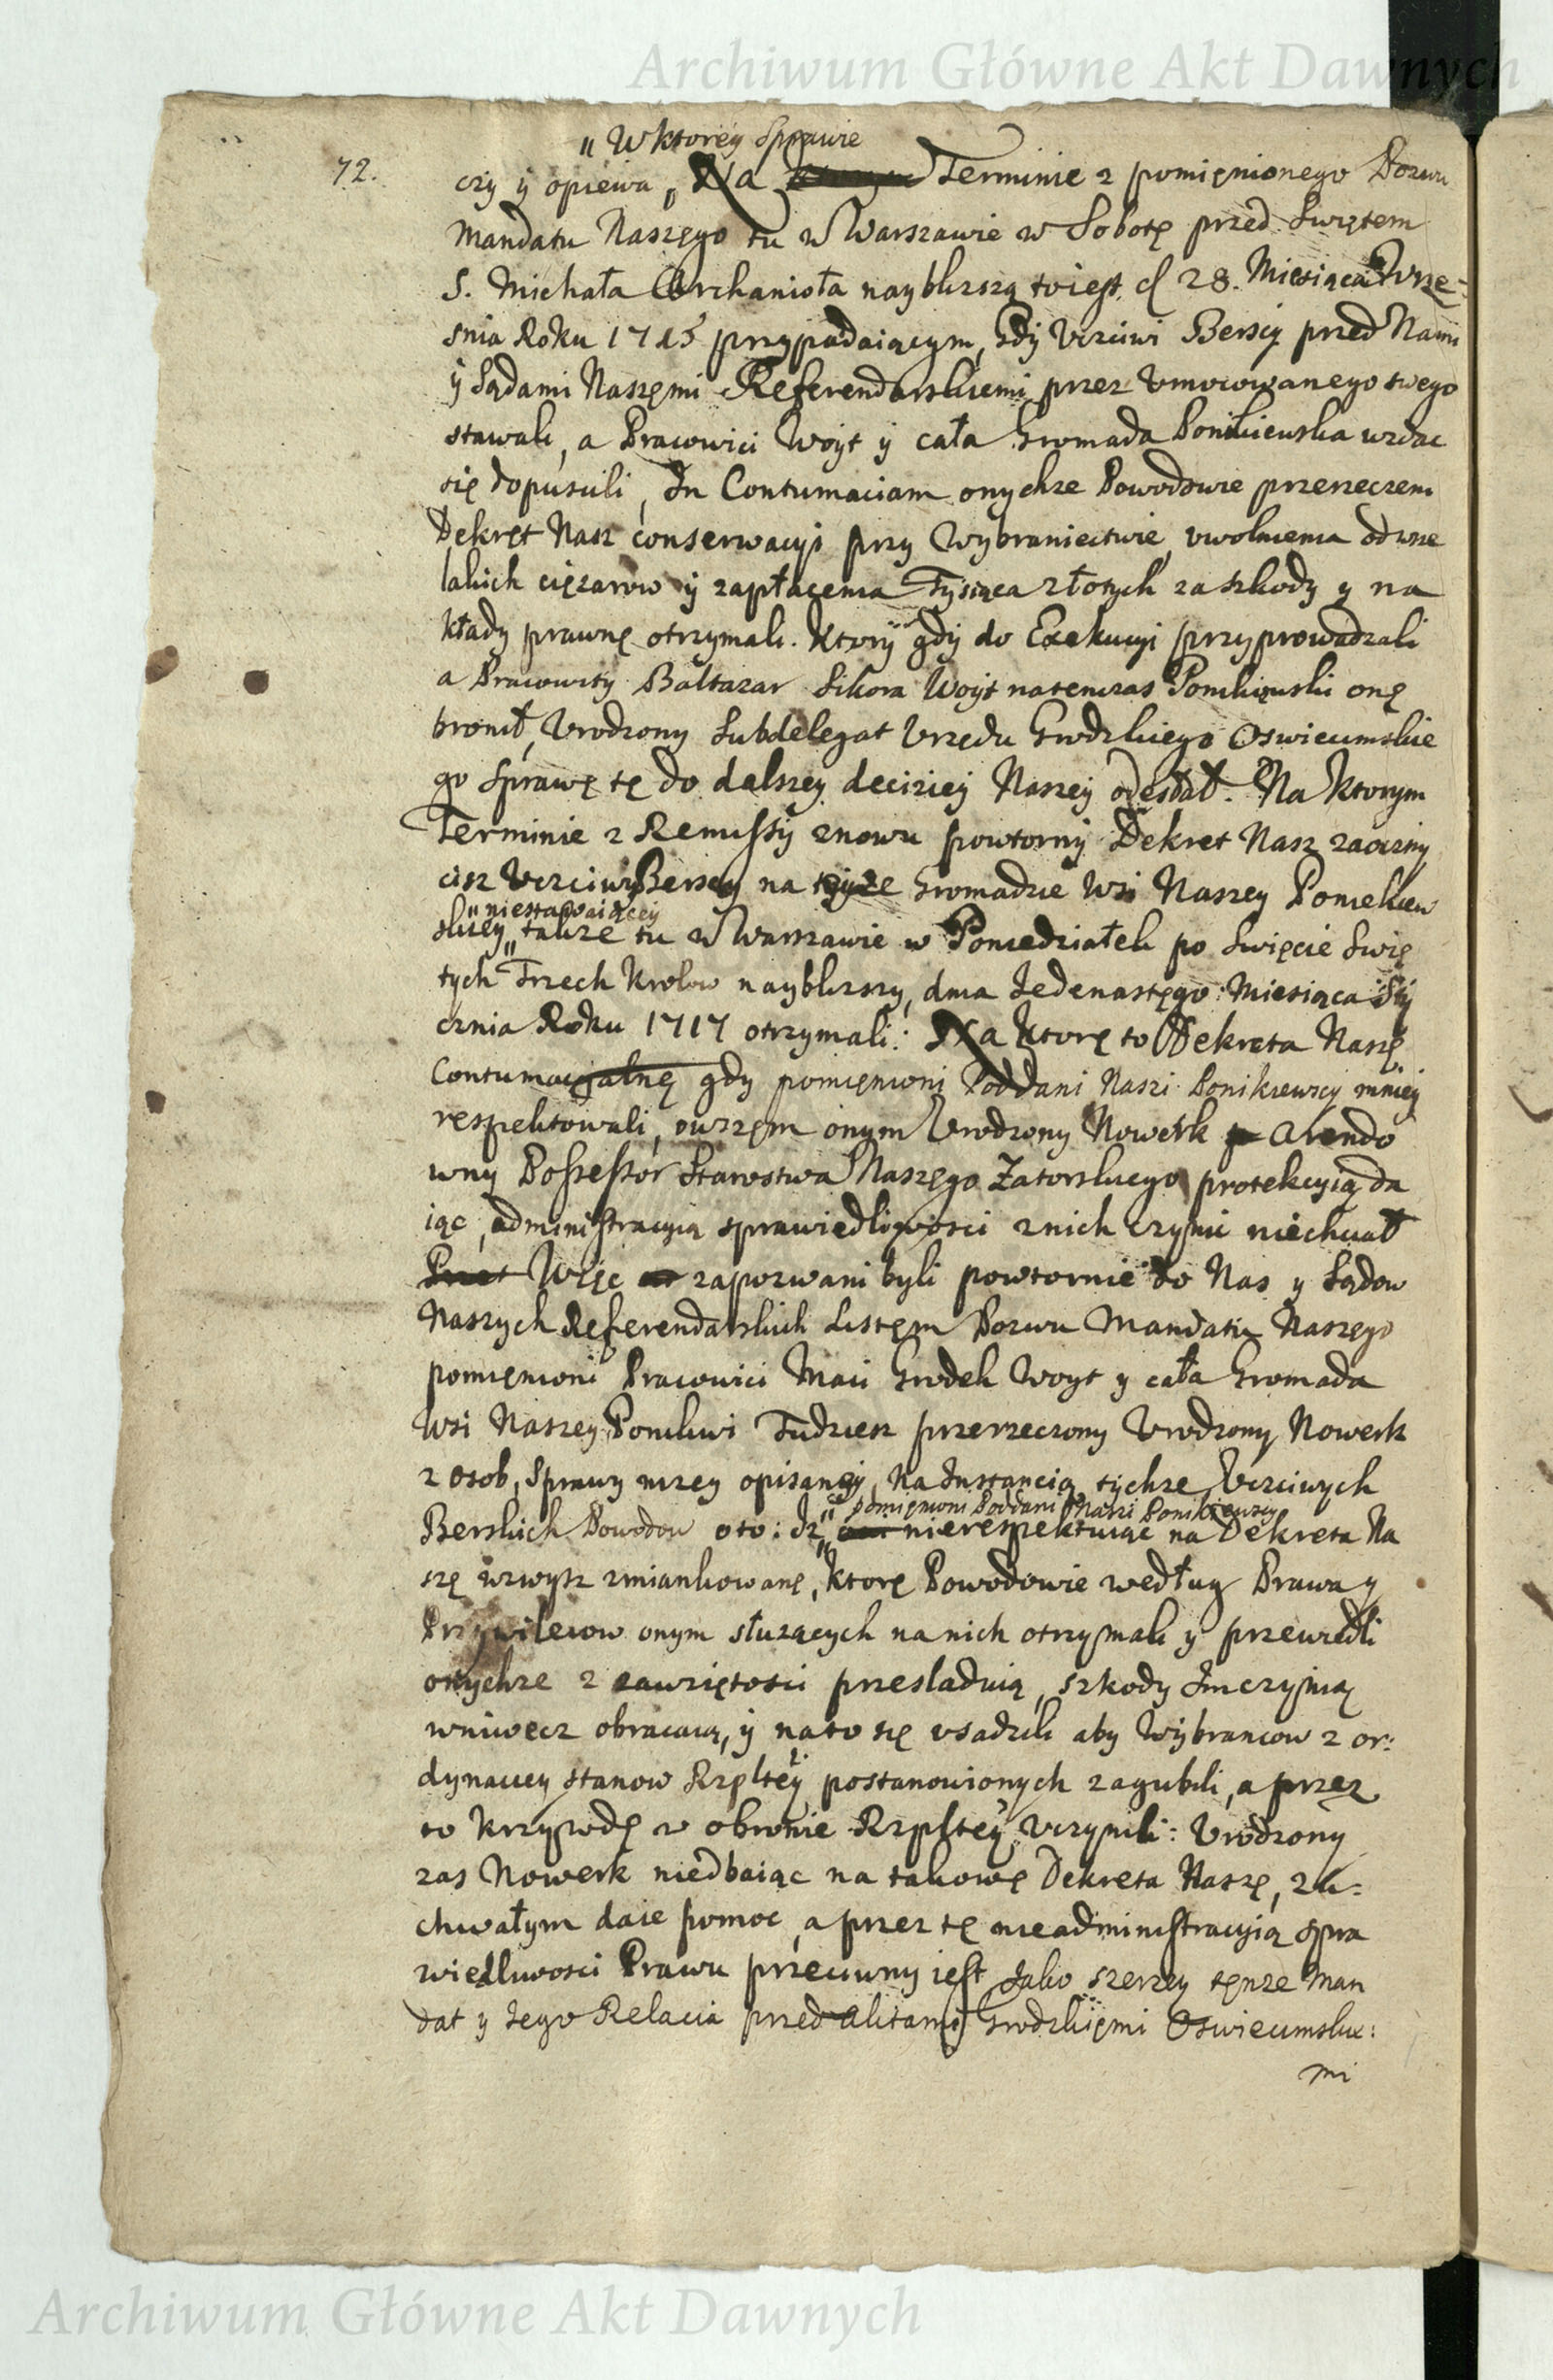 Archiwum Główne Akt Dawnych
72.
" W ktorey Sprawie
czy y opiewa " Na Terminie z pomięnionego Pozwu
Mandatu Naszęgo tu w Warszawie w Sobotę przed Swiętem
S. Michała Archanioła nayblizszą toiest d 28. Miesiąca Wrze-
snia Roku 1715 przypadaiącym, Gdy Vczciwi Berscy przed Nami
y Sądami Naszęmi Referendarskiemi przez Vmocowanego swego
stawali, a Pracowici Woyt y cała Gromada Ponikiewska wzdac
się dopuscili, In Contumaciam onychze Powodowie przerzeczeni
Dekręt Nasz conserwacyi przy Wybraniectwie, vwolnienia odwsze
lakich cięzarow y zapłacenia Tysiąca złotych za szkody y na
kłady prawnę otrzymali. Ktory gdy do Exekucyi przyprowadzali
a Pracowity Baltazar Sikora Woyt natenczas Ponikięwski onę
bronił, Vrodzony Subdelegat Vrzędu Grodzkiego Oswiecimskie
go Sprawę tę do dalszey deciziey Naszey odesłał. Na ktorym
Terminie z Remissy znowu powtorny Dekret Nasz zaoczny
cisz Vczciwy Berscy na teyze Gromadzie Wsi Naszey Poniekiew
" niestawaiącey
skiey " takze tu w Warszawie w Poniedziałek po Swięcie Swię
tych Trzech Krolow nayblizszy, dnia Jedenastęgo Miesiąca Sty
cznia Roku 1717 otrzymali: Na ktorę to Dekreta Naszę
Contumacyalnę gdy pomięnioni Poddani Nasi Ponikiewscy mniey
respektowali, owszęm onym Vrodzony Nowerk Arendo
wny Possessor Starostwa Naszęgo Zatorskiego protekcyią da
iąc, administracyią sprawiedliwosci znich czynic niechciał
Więc zapozwani byli powtornie do Nas y Sądow
Naszych Referendarskich Listęm Pozwu Mandatu Naszęgo
pomięnioni Pracowici Maci Grodek Woyt y cała Gromada
Wsi Naszey Ponikwi Tudziesz przerzeczony Vrodzony Nowerk
z Osob, Sprawy nizey opisaney, Na Instancią tychze Vczciwych
" pomięnioni Poddani Nasi Ponikiewscy
Berskich Powodow oto: Iz " nierespektuiąc na Dekreta Na
szę wzwysz zmiankowanę, ktorę Powodowie według Prawa y
Przywileiow onym słuzących nanich otrzymali y przewiedli
onychze z zawziętosci przesladuią, szkody Im czynią
wniwecz obracaią, y nato się vsadzili aby Wybrancow z or:
dynaciey stanow Rzpltey postanowionych zagubili, a przez
to krzywdę w obronie Rzpltey vczynili: Vrodzony
zas Nowerk niedbaiąc na takowę Dekreta Naszę, zu:
chwałym daie pomoc, a przez tę nieadministracyią spra
wiedliwosci Prawu przeciwny iest Jako szerzey tęnze Man
dat y Jego Relacia przed Aktami Grodzkięmi Oswiecimskie:
mi
Archiwum Główne Akt Dawnych